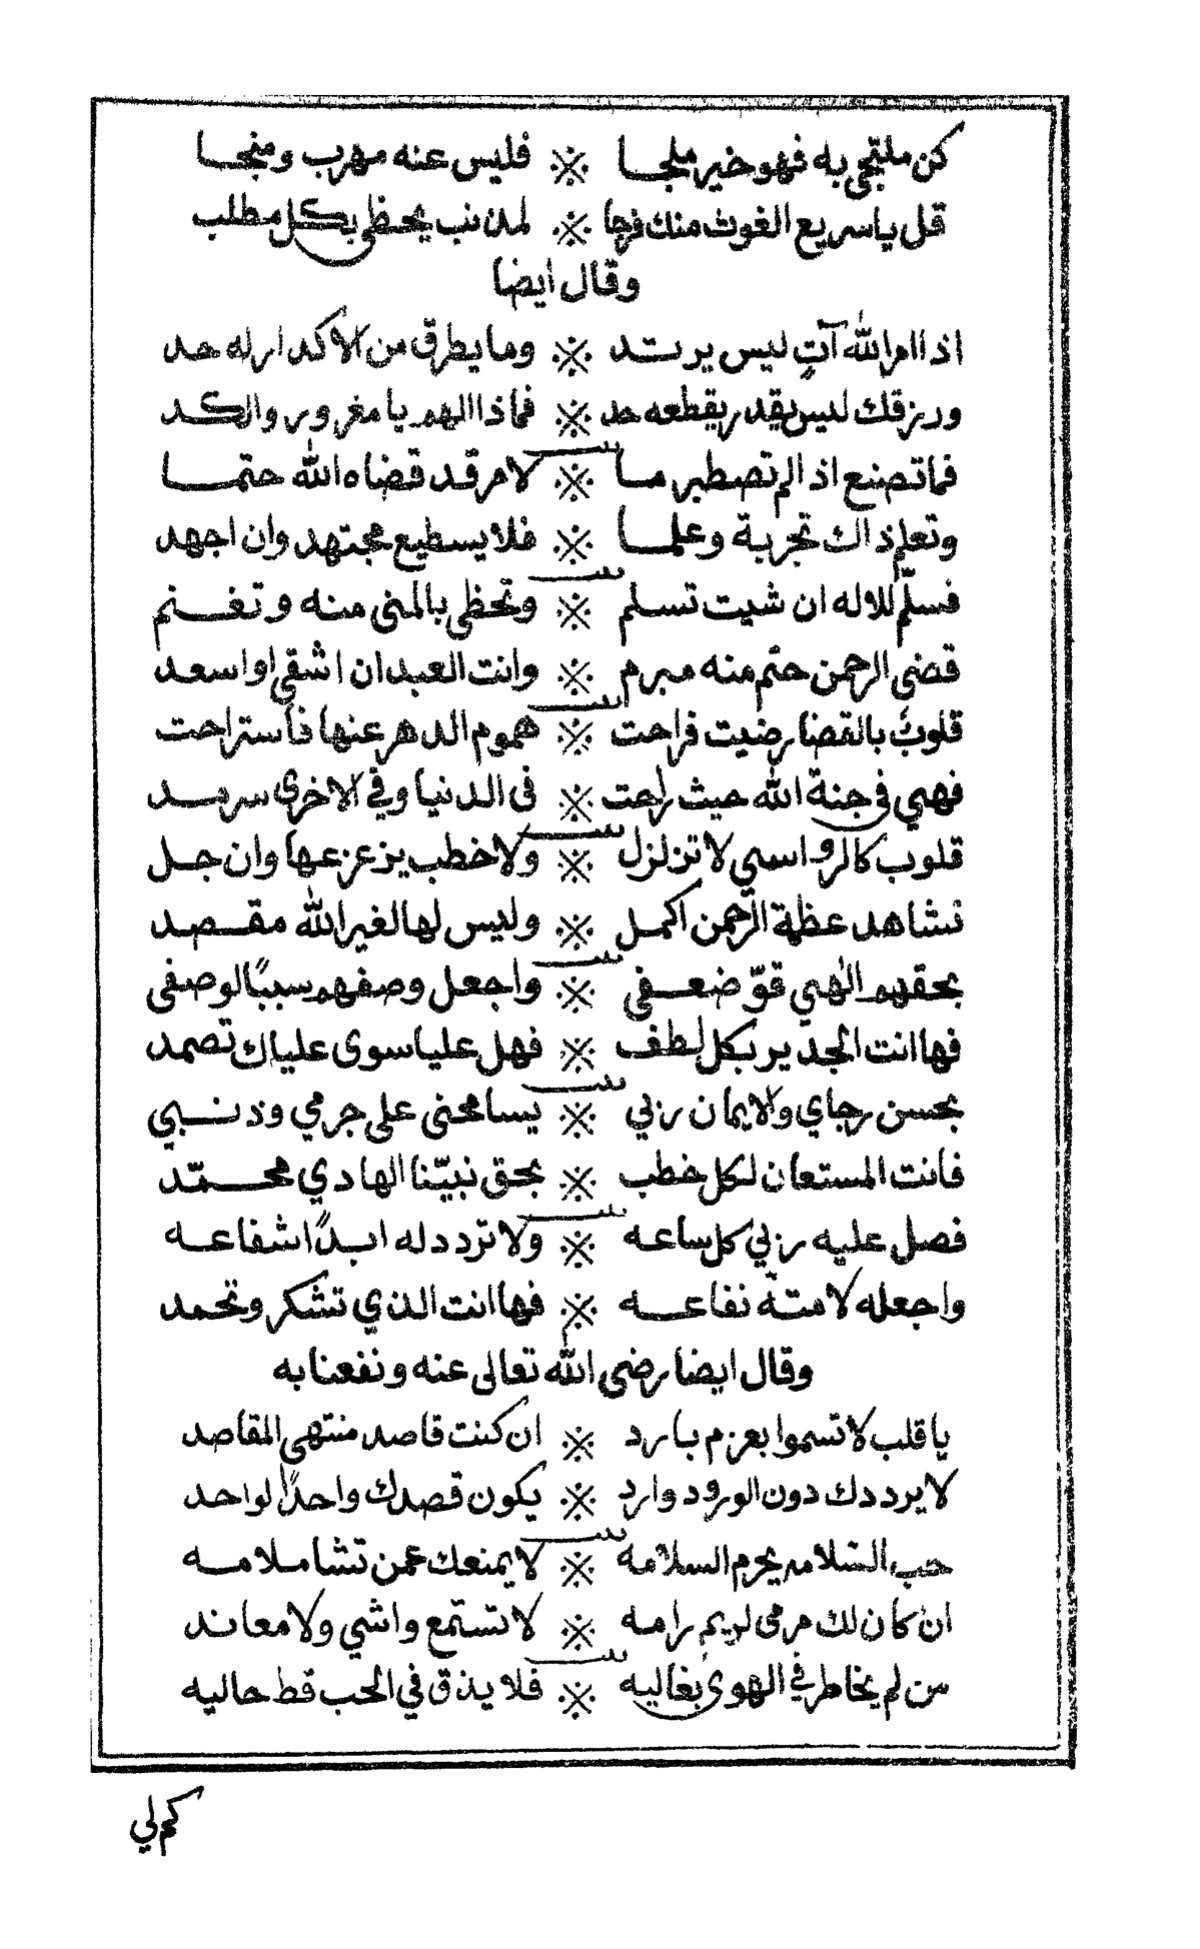 كن ملتجي به فهو خير ملجا ※ فليس عنه مهرب ومنجا
قل يا سريع الغوث منك فرجا ※ لمذنب يحظى بكل مطلب
وقال ايضا
اذا امر الله آتٍ ليس يرتد ※ وما يطرق من الاكدار له حد
ورزقك ليس يقدر يقطعه حد ※ فماذا الهم يا مغرور والكد
فما تصنع اذا لم تصطبر ما ※ لامر قد قضاه الله حتما
وتعلم ذاك تجربة وعلما ※ فلا يسطيع مجتهد وان اجهد
فسلّم للاله ان شيت تسلم ※ وتحظى بالمنى منه وتغنم
قضى الرحمن حتم منه مبرم ※ وانت العبد ان اشقى او اسعد
قلوبٌ بالقضا رضيت فراحت ※ هموم الدهر عنها فاستراحت
فهي في جنة الله حيث راحت ※ في الدنيا وفي الاخرى سرمد
قلوب كالرواسي لا تزلزل ※ ولا خطب يزعزعها وان جل
تشاهد عظمة الرحمن اكمل ※ وليس لها لغير الله مقصد
بحقهم الهي قوّ ضعفي ※ واجعل وصفهم سببًا لوصفي
فها انت الجدير بكل لطف ※ فهل عليا سوى علياك تصمد
بحسن رجاي والايمان ربي ※ يسامحنى على جرمي وذنبي
فانت المستعان لكل خطب ※ بحق نبيّنا الهادي محمّد
فصل عليه ربي كل ساعه ※ ولا تردد له ابدًا شفاعه
واجعله لامته نفاعه ※ فها انت الذي تشكر وتحمد
وقال ايضا رضي الله تعالى عنه ونفعنا به
يا قلب لا تسموا بعزم بارد ※ ان كنت قاصد منتهى المقاصد
لا يرددك دون الورود وارد ※ يكون قصدك واحدًا لواحد
حب السلامه يحرم السلامه ※ لا يمنعك عمن تشا ملامه
ان كان لك مرمى لريم رامه ※ لا تستمع واشي ولا معاند
من لم يخاطر في الهوى بغاليه ※ فلا يذق في الحب قط حاليه
كم لي